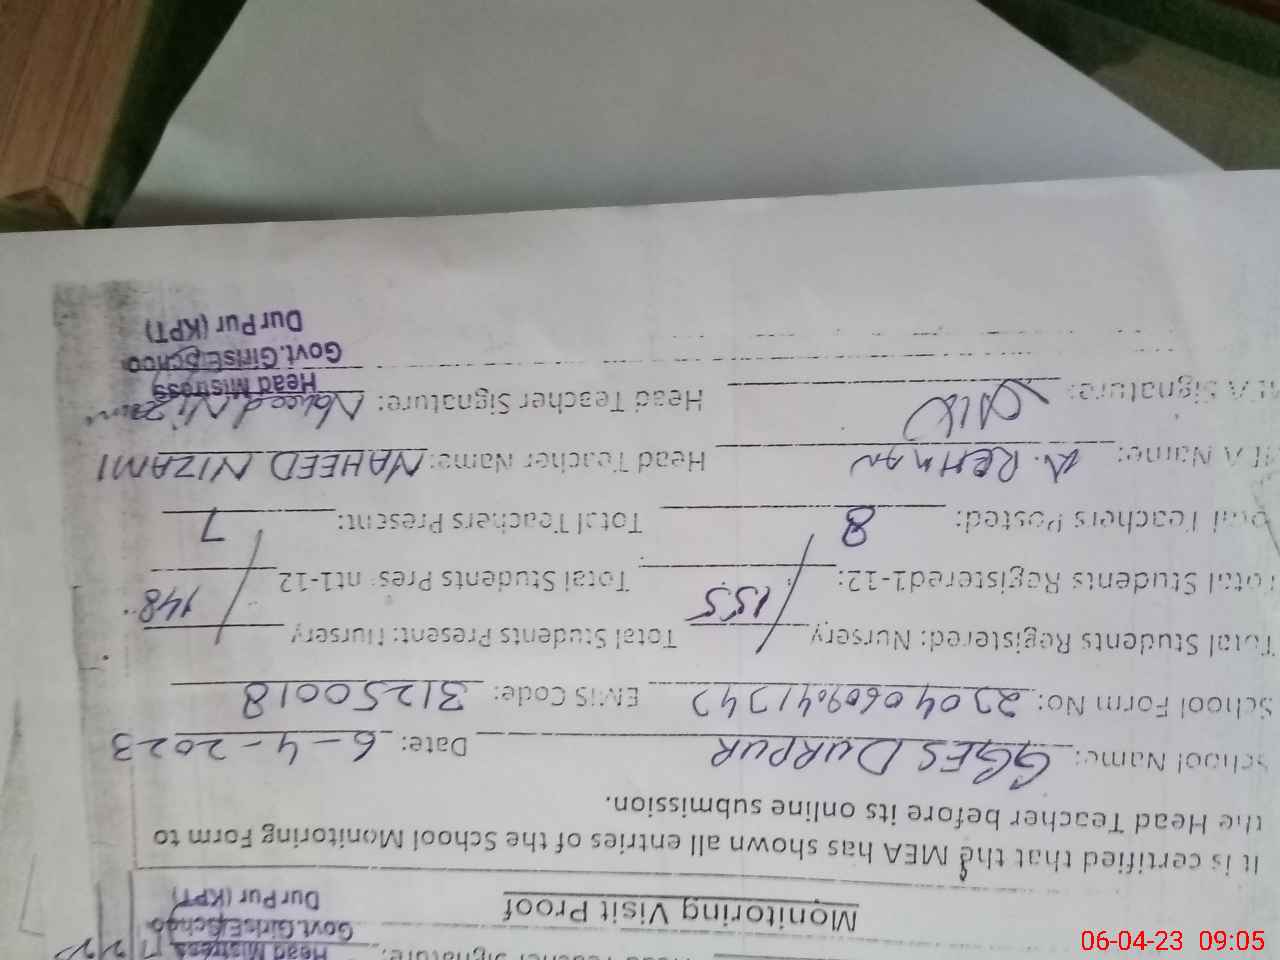 Head Teacher Signature:
Head Mistress
Govt.GirlsE/School
Dur Pur (KPT)
Monitoring Visit Proof
It is certified that the MEA has shown all entries of the School Monitoring Form to
the Head Teacher before its online submission.
School Name: GGES DURPUR Date: 6-4-2023
School Form No: EMIS Code: 31250018
Total Students Registered: Nursery 155 Total Students Present: Nursery 148
Total Students Registered1-12: Total Students Present1-12
Total Teachers Posted: 8 Total Teachers Present: 7
MEA Name: A. REHMAN Head Teacher Name: NAHEED NIZAMI
MEA Signature: Head Teacher Signature: Naheed Nizami
Head Mistress
Govt.GirlsE/School
Dur Pur (KPT)
06-04-23 09:05